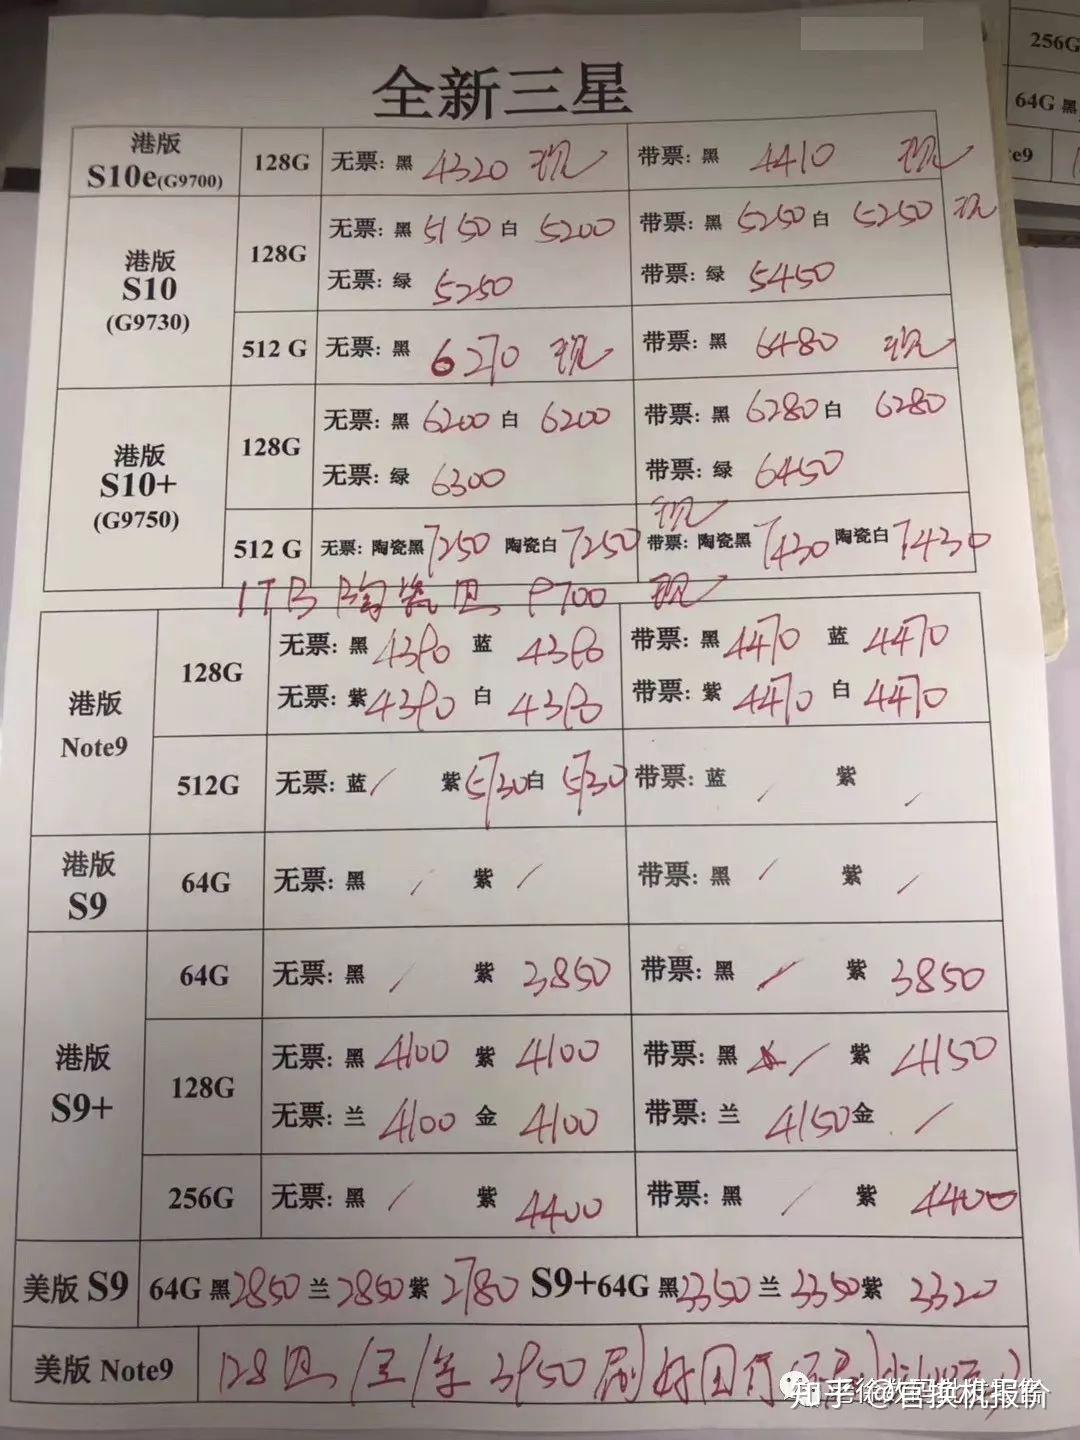 全新三星
港版 S10e(G9700) 128G 无票: 黑 4320 现 带票: 黑 4410 现
港版 S10 (G9730) 128G 无票: 黑 5150 白 5200 带票: 黑 5250 白 5250 现
无票: 绿 5250 带票: 绿 5450
512 G 无票: 黑 6270 现 带票: 黑 6480 现
港版 S10+ (G9750) 128G 无票: 黑 6200 白 6200 带票: 黑 6280 白 6280
无票: 绿 6300 带票: 绿 6450
现
512 G 无票: 陶瓷黑 7250 陶瓷白 7250 带票: 陶瓷黑 7430 陶瓷白 7430
1TB 陶瓷黑 8700 现
港版 Note9 128G 无票: 黑 4380 蓝 4380 带票: 黑 4470 蓝 4470
无票: 紫 4390 白 4380 带票: 紫 4470 白 4470
512G 无票: 蓝 / 紫 5730 白 5730 带票: 蓝 / 紫 /
港版 S9 64G 无票: 黑 / 紫 / 带票: 黑 / 紫 /
港版 S9+ 64G 无票: 黑 / 紫 3850 带票: 黑 / 紫 3850
128G 无票: 黑 4100 紫 4100 带票: 黑 / 紫 4150
无票: 兰 4100 金 4100 带票: 兰 4150 金 /
256G 无票: 黑 / 紫 4400 带票: 黑 / 紫 4400
美版 S9 64G 黑 2850 兰 2850 紫 2780 S9+64G 黑 3350 兰 3350 紫 3320
美版 Note9 128黑/兰/紫 3950 刷好国行
256G
64G 黑
te9
知乎 @官换机报价